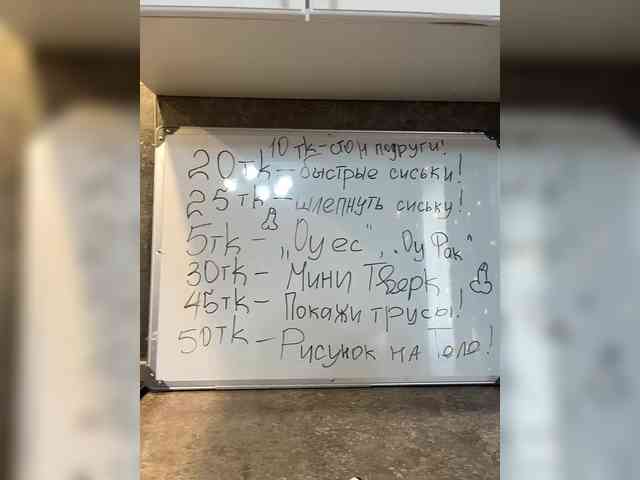 10 тк - стон подруги!
20 тк - быстрые сиськи!
25 тк - шлепнуть сиську!
5тк - „Оу ес", „Оу Фак"
30тк - Мини Тверк
45тк - Покажи трусы!
50тк - Рисунок на Теле!